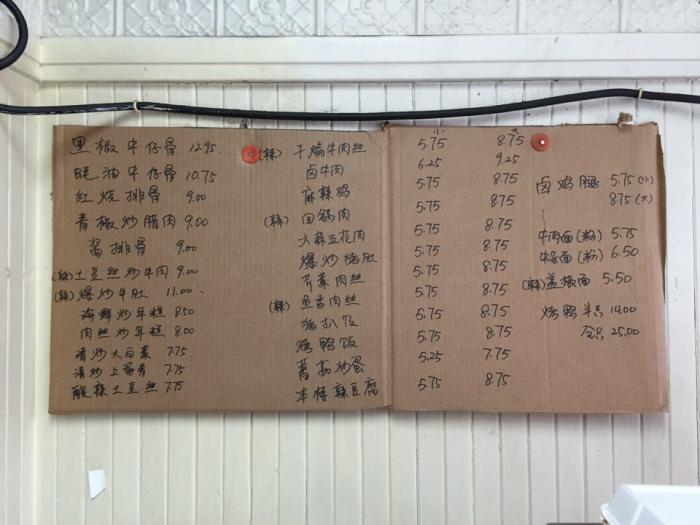 黑椒牛仔骨 12.95
豉油牛仔骨 10.75
红烧排骨 9.00
青椒炒腊肉 9.00
酱排骨 9.00
(辣)土豆丝炒牛肉 9.00
(辣)爆炒牛肚 11.00
海鲜炒年糕 8.50
肉丝炒年糕 8.00
清炒大白菜 7.75
清炒上海青 7.75
酸辣土豆丝 7.75
小 大
(辣)干煸牛肉丝 5.75 8.75
卤牛肉 6.25 9.25
麻辣鸡 5.75 8.75
(辣)回锅肉 5.75 8.75
大蒜五花肉 5.75 8.75
爆炒猪肚 5.75 8.75
芹菜肉丝 5.75 8.75
(辣)鱼香肉丝 5.75 8.75
猪扒饭 5.75 8.75
烤鸭饭 5.75 8.75
炒蛋 5.25 7.75
本楼麻豆腐 5.75 8.75
卤鸡腿 5.75 (小)
8.75 (大)
牛肉面(粉) 5.75
面(粉) 6.50
(辣)盖椒面 5.50
烤鸭 半只 14.00
全只 25.00